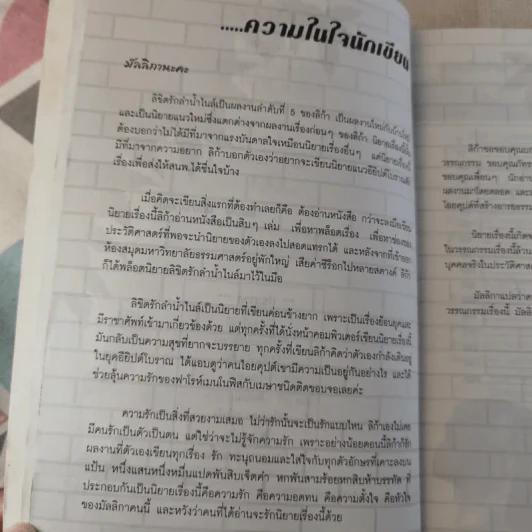 .....ความในใจนักเขียน
มัลลิกานะคะ
ลิขิตรักลำน้ำไนล์เป็นผลงานลำดับที่ 5 ของลิก้า เป็นผลงานใหม่
และเป็นนิยายแนวใหม่ซึ่งแตกต่างจากผลงานเรื่องก่อนๆ ของลิก้า นิยายเรื่องนี้
ต้องบอกว่าไม่ได้มีที่มาจากแรงบันดาลใจเหมือนนิยายเรื่องอื่นๆ แต่นิยายเรื่องนี้
มีที่มาจากความอยาก ลิก้าบอกตัวเองว่าอยากจะเขียนนิยายแนวอียิปต์โบราณ
เรื่องเพื่อส่งให้สนพ.ได้ชื่นใจบ้าง
เมื่อคิดจะเขียนสิ่งแรกที่ต้องทำเลยก็คือ ต้องอ่านหนังสือ กว่าจะลงมือเขียน
นิยายเรื่องนี้ลิก้าอ่านหนังสือเป็นสิบๆ เล่ม เพื่อหาพล็อตเรื่อง เพื่อหาช่อง
ประวัติศาสตร์ที่พอจะนำนิยายของตัวเองลงไปสอดแทรกได้ และหลังจากที่เข้าออก
ห้องสมุดมหาวิทยาลัยธรรมศาสตร์อยู่พักใหญ่ เสียค่าซีร็อกไปหลายสตางค์ ลิก้า
ก็ได้พล็อตนิยายลิขิตรักลำน้ำไนล์มาไว้ในมือ
ลิขิตรักลำน้ำไนล์เป็นนิยายที่เขียนค่อนข้างยาก เพราะเป็นเรื่องย้อนยุคและ
มีราชาศัพท์เข้ามาเกี่ยวข้องด้วย แต่ทุกครั้งที่ได้นั่งหน้าคอมพิวเตอร์เขียนนิยายเรื่องนี้
มันกลับเป็นความสุขที่ยากจะบรรยาย ทุกครั้งที่เขียนลิก้าคิดว่าตัวเองกำลังเดินอยู่
ในยุคอียิปต์โบราณ ได้แอบดูว่าคนไอยคุปต์เขามีความเป็นอยู่กันอย่างไร และได้
ช่วยลุ้นความรักของฟาโรห์เมนโนฟิสกับเมษาชนิดติดขอบจอเลยค่ะ
ความรักเป็นสิ่งที่สวยงามเสมอ ไม่ว่ารักนั้นจะเป็นรักแบบไหน ลิก้าเองไม่เคย
มีคนรักเป็นตัวเป็นตน แต่ใช่ว่าจะไม่รู้จักความรัก เพราะอย่างน้อยตอนนี้ลิก้าก็รัก
ผลงานที่ตัวเองเขียนทุกเรื่อง รัก ทะนุถนอมและใส่ใจกับทุกตัวอักษรที่เคาะลงบน
แป้น หนึ่งแสนหนึ่งหมื่นแปดพันสิบเจ็ดคำ หกพันสามร้อยหกสิบห้าบรรทัด ที่
ประกอบกันเป็นนิยายเรื่องนี้คือความรัก คือความอดทน คือความตั้งใจ คือหัวใจ
ของมัลลิกาคนนี้ และหวังว่าคนที่ได้อ่านจะรักนิยายเรื่องนี้ด้วย
ลิก้าขอขอบคุณ
วรรณกรรม ขอบคุณ
ขอบคุณเพื่อนๆ นักอ่าน
ผลงานมาโดยตลอด และ
ไอยคุปต์ที่สร้างอารยธรรม
นิยายเรื่องนี้เกิด
ในวรรณกรรมเรื่องนี้ล้วน
บุคคลจริงในประวัติศาสตร์
มัลลิกาแปลว่า
วรรณกรรมเรื่องนี้ มัลลิ